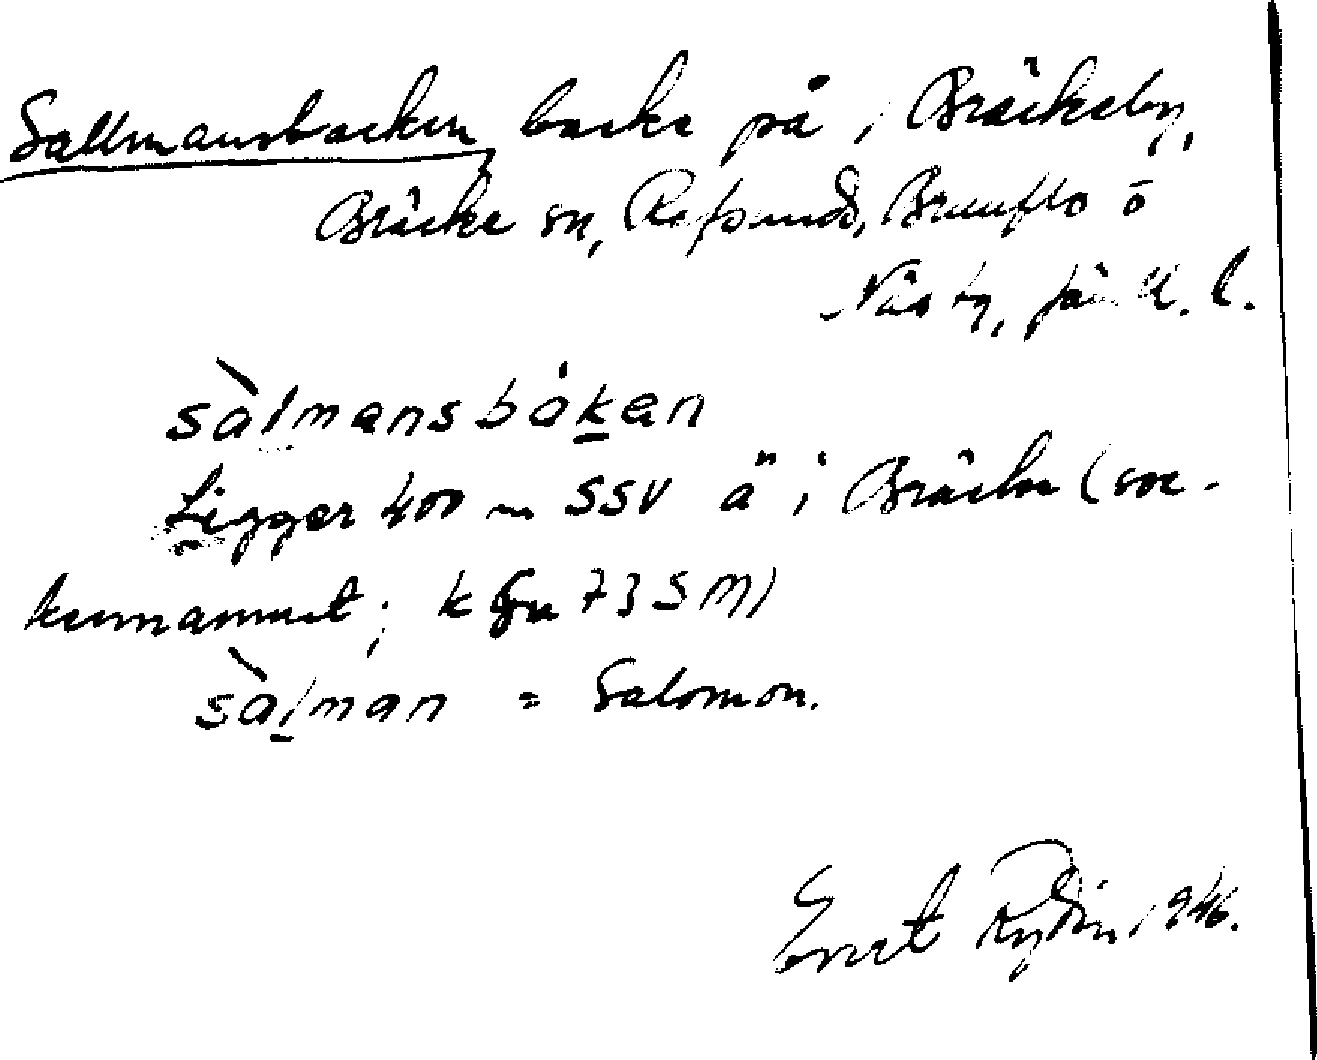 Sallmansbacken, backe på i Bräckeby,
Bräcke sn, Refsunds, Brunflo o
Näs tg, Jäm. l.
sàlmansbákan
Ligger 400 m SSV ä i Bräcke (soc-
kennamnet; k fr 73 5 M)
sàlman = Salomon.
Ernst Rydin 1946.